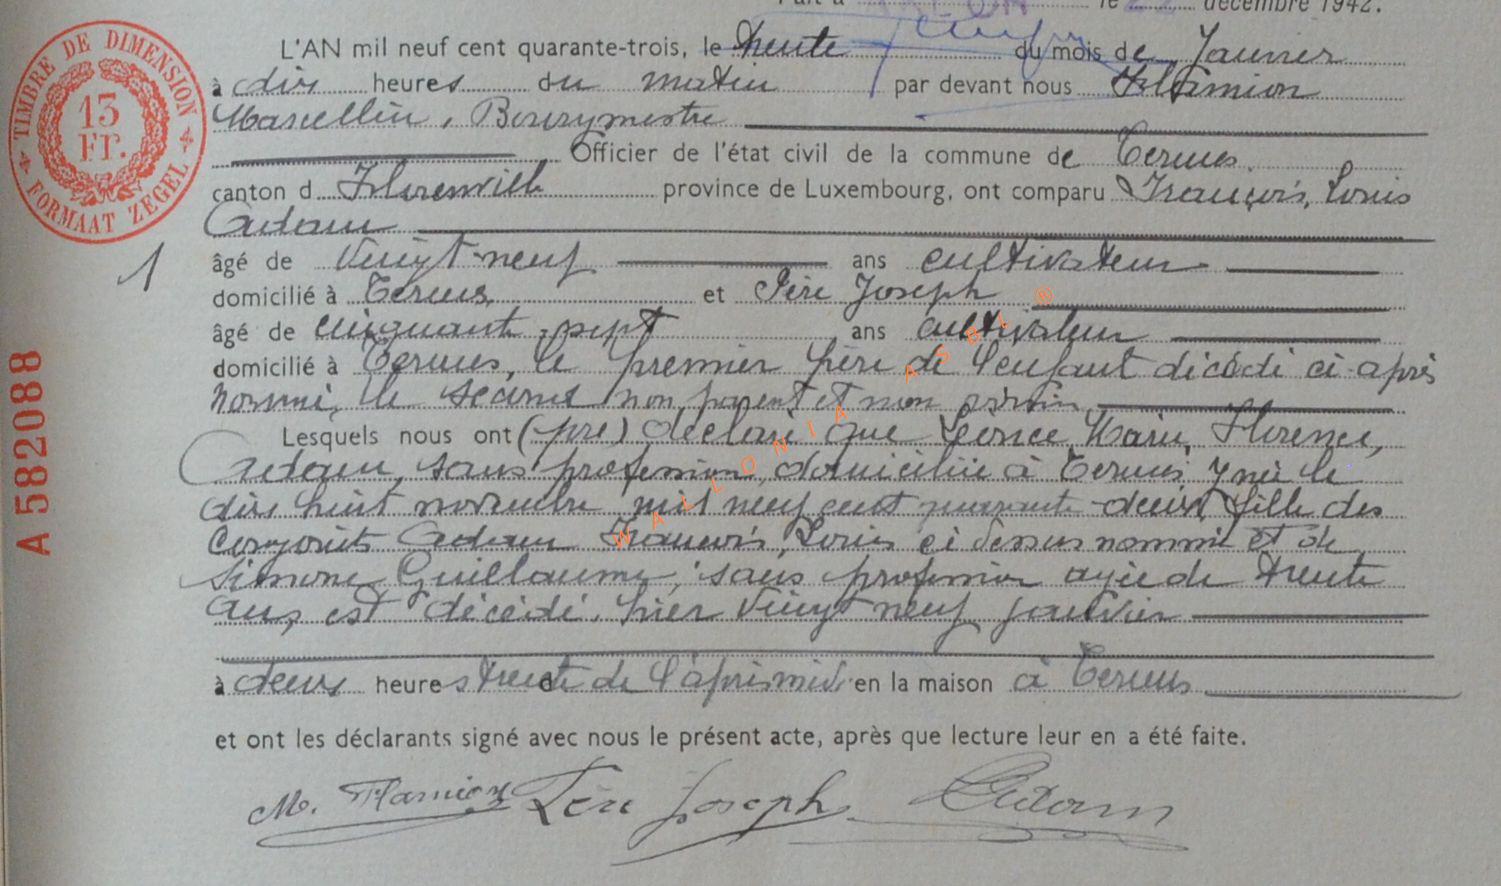 Fait à le 22 décembre 1942.
L'AN mil neuf cent quarante-trois, le trente du mois de Janvier
à dix heures du matin par devant nous Flamion
Marcellin, Bourgmestre
Officier de l'état civil de la commune de Termes
canton d Florenville province de Luxembourg, ont comparu François, Louis
Adam
1
âgé de Vingt neuf ans cultivateur
domicilié à Termes et Père Joseph
âgé de cinquante sept ans cultivateur
domicilié à Termes, le premier père de l'enfant décédé ci-après
nommé, le second non parent et non voisin
Lesquels nous ont (pre) déclaré que Léonce, Marie, Florence,
Adam, sans profession, domiciliée à Termes, y née le
dix huit novembre mil neuf cent quarante-deux, fille des
Conjoints Adam François, Louis ci dessus nommé et de
Simone Guillaume, sans profession agée de trente
ans, est décédé, hier vingt neuf janvier
à deux heures trente de l'après midi en la maison à Termes
et ont les déclarants signé avec nous le présent acte, après que lecture leur en a été faite.
M. Flamion Père Joseph Adam
TIMBRE DE DIMENSION
13
Fr.
FORMAAT ZEGEL
A 582088
WALLONIA ASBL ®